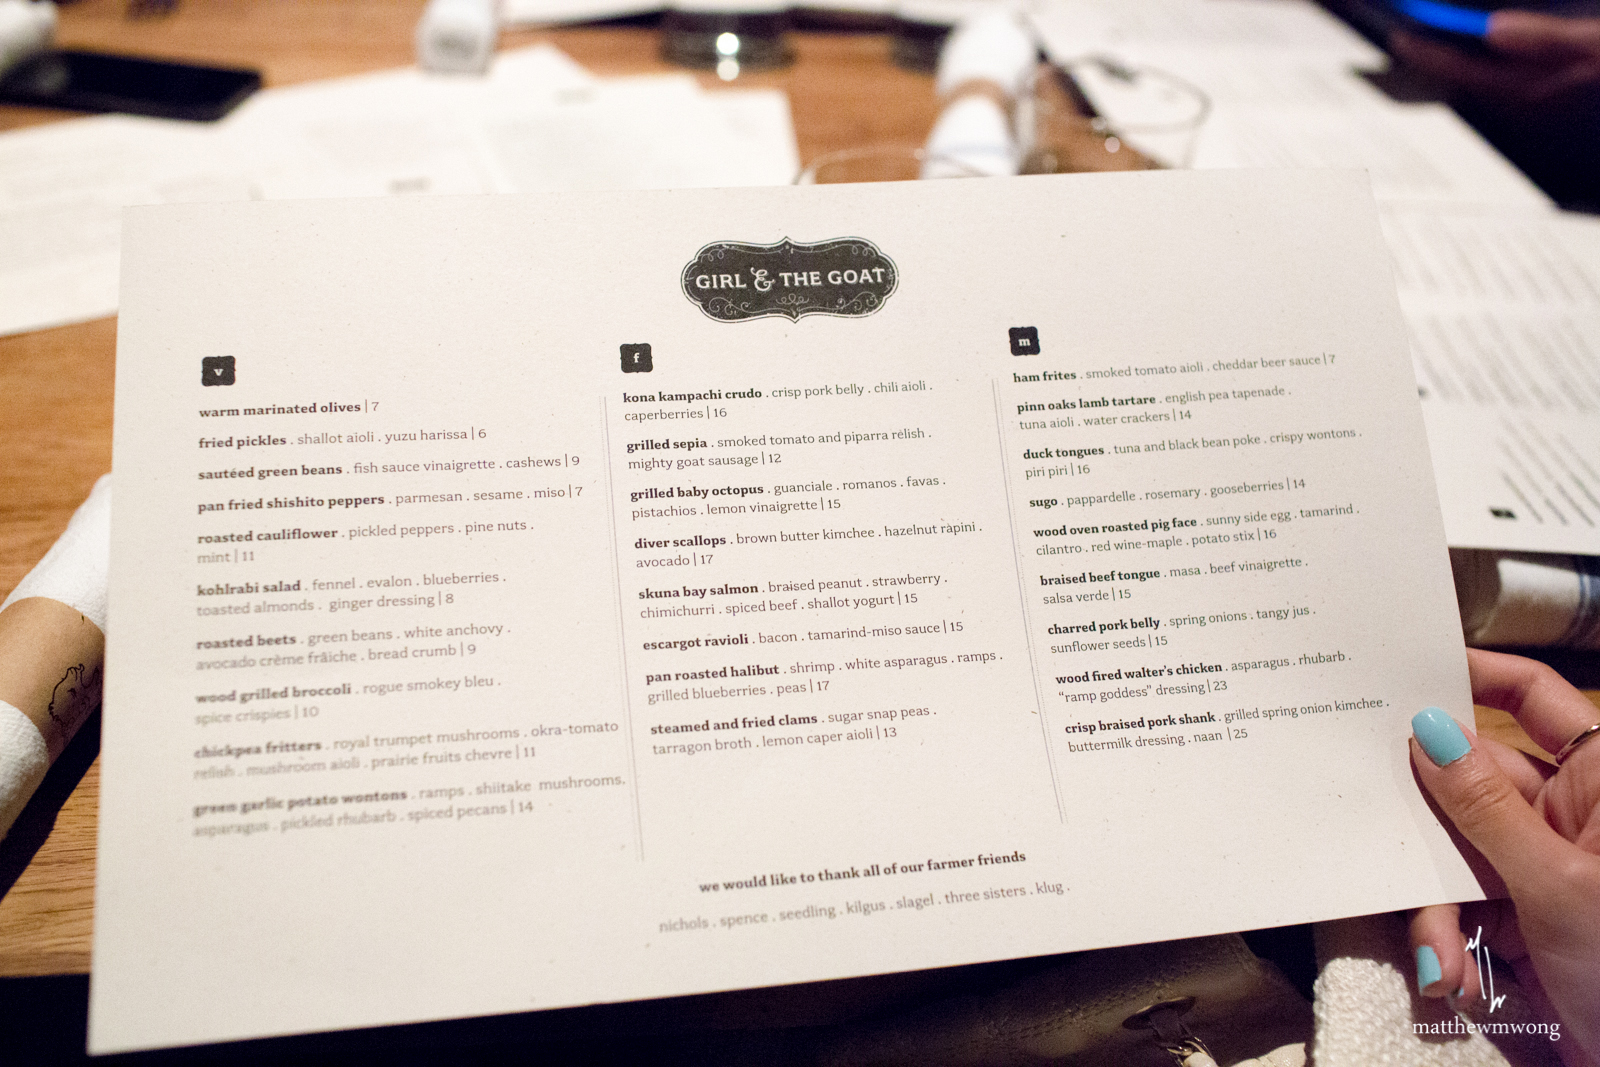 GIRL & THE GOAT
v
warm marinated olives | 7
fried pickles . shallot aioli . yuzu harissa | 6
sautéed green beans . fish sauce vinaigrette . cashews | 9
pan fried shishito peppers . parmesan . sesame . miso | 7
roasted cauliflower . pickled peppers . pine nuts .
mint | 11
kohlrabi salad . fennel . evalon . blueberries .
toasted almonds . ginger dressing | 8
roasted beets . green beans . white anchovy .
avocado crème frâiche . bread crumb | 9
wood grilled broccoli . rogue smokey bleu .
spice crispies | 10
chickpea fritters . royal trumpet mushrooms . okra-tomato
relish . mushroom aioli . prairie fruits chevre | 11
green garlic potato wontons . ramps . shiitake mushrooms.
asparagus . pickled rhubarb . spiced pecans | 14
f
kona kampachi crudo . crisp pork belly . chili aioli .
caperberries | 16
grilled sepia . smoked tomato and piparra relish .
mighty goat sausage | 12
grilled baby octopus . guanciale . romanos . favas .
pistachios . lemon vinaigrette | 15
diver scallops . brown butter kimchee . hazelnut rapini .
avocado | 17
skuna bay salmon . braised peanut . strawberry .
chimichurri . spiced beef . shallot yogurt | 15
escargot ravioli . bacon . tamarind-miso sauce | 15
pan roasted halibut . shrimp . white asparagus . ramps .
grilled blueberries . peas | 17
steamed and fried clams . sugar snap peas .
tarragon broth . lemon caper aioli | 13
m
ham frites . smoked tomato aioli . cheddar beer sauce | 7
pinn oaks lamb tartare . english pea tapenade .
tuna aioli . water crackers | 14
duck tongues . tuna and black bean poke . crispy wontons .
piri piri | 16
sugo . pappardelle . rosemary . gooseberries | 14
wood oven roasted pig face . sunny side egg . tamarind .
cilantro . red wine-maple . potato stix | 16
braised beef tongue . masa . beef vinaigrette .
salsa verde | 15
charred pork belly . spring onions . tangy jus .
sunflower seeds | 15
wood fired walter's chicken . asparagus . rhubarb .
"ramp goddess" dressing | 23
crisp braised pork shank . grilled spring onion kimchee .
buttermilk dressing . naan | 25
we would like to thank all of our farmer friends
nichols . spence . seedling . kilgus . slagel . three sisters . klug .
matthewmwong